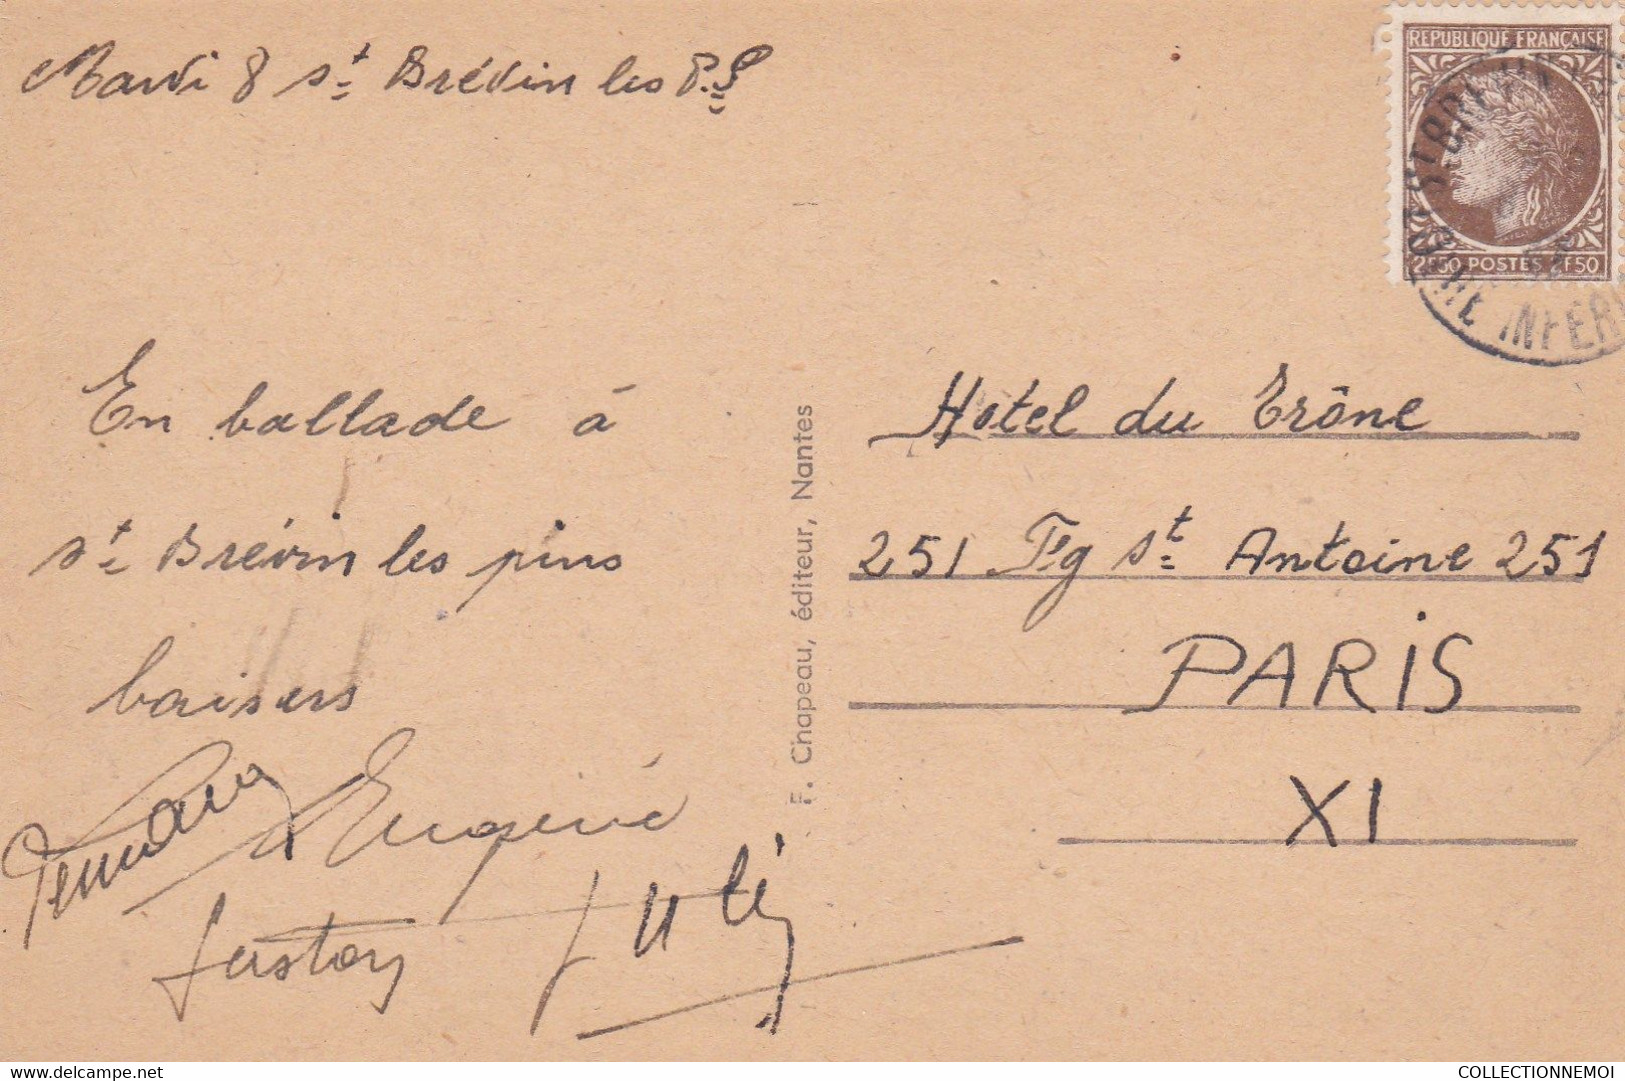 Mardi 8 St Brévin les P.S
REPUBLIQUE FRANÇAISE
2F50 POSTES 2F50
ST BREVIN
INFER
En ballade à
St Brévin les pins
baisers
Eugénie
Gaston Juli
F. Chapeau, éditeur, Nantes
Hotel du Trône
251 Fg St Antoine 251
PARIS
XI
delcampe.net
COLLECTIONNEMOI